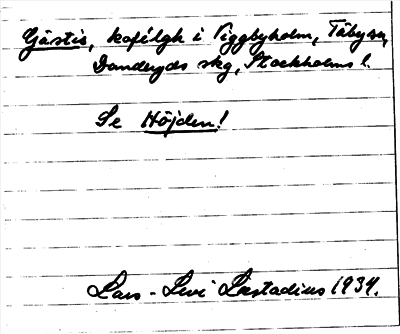 Gästis, kafélgh i Viggbyholm, Täby sn,
Danderyds skg, Stockholms l.
Se Höjden!
Lars-Levi Læstadius 1934.